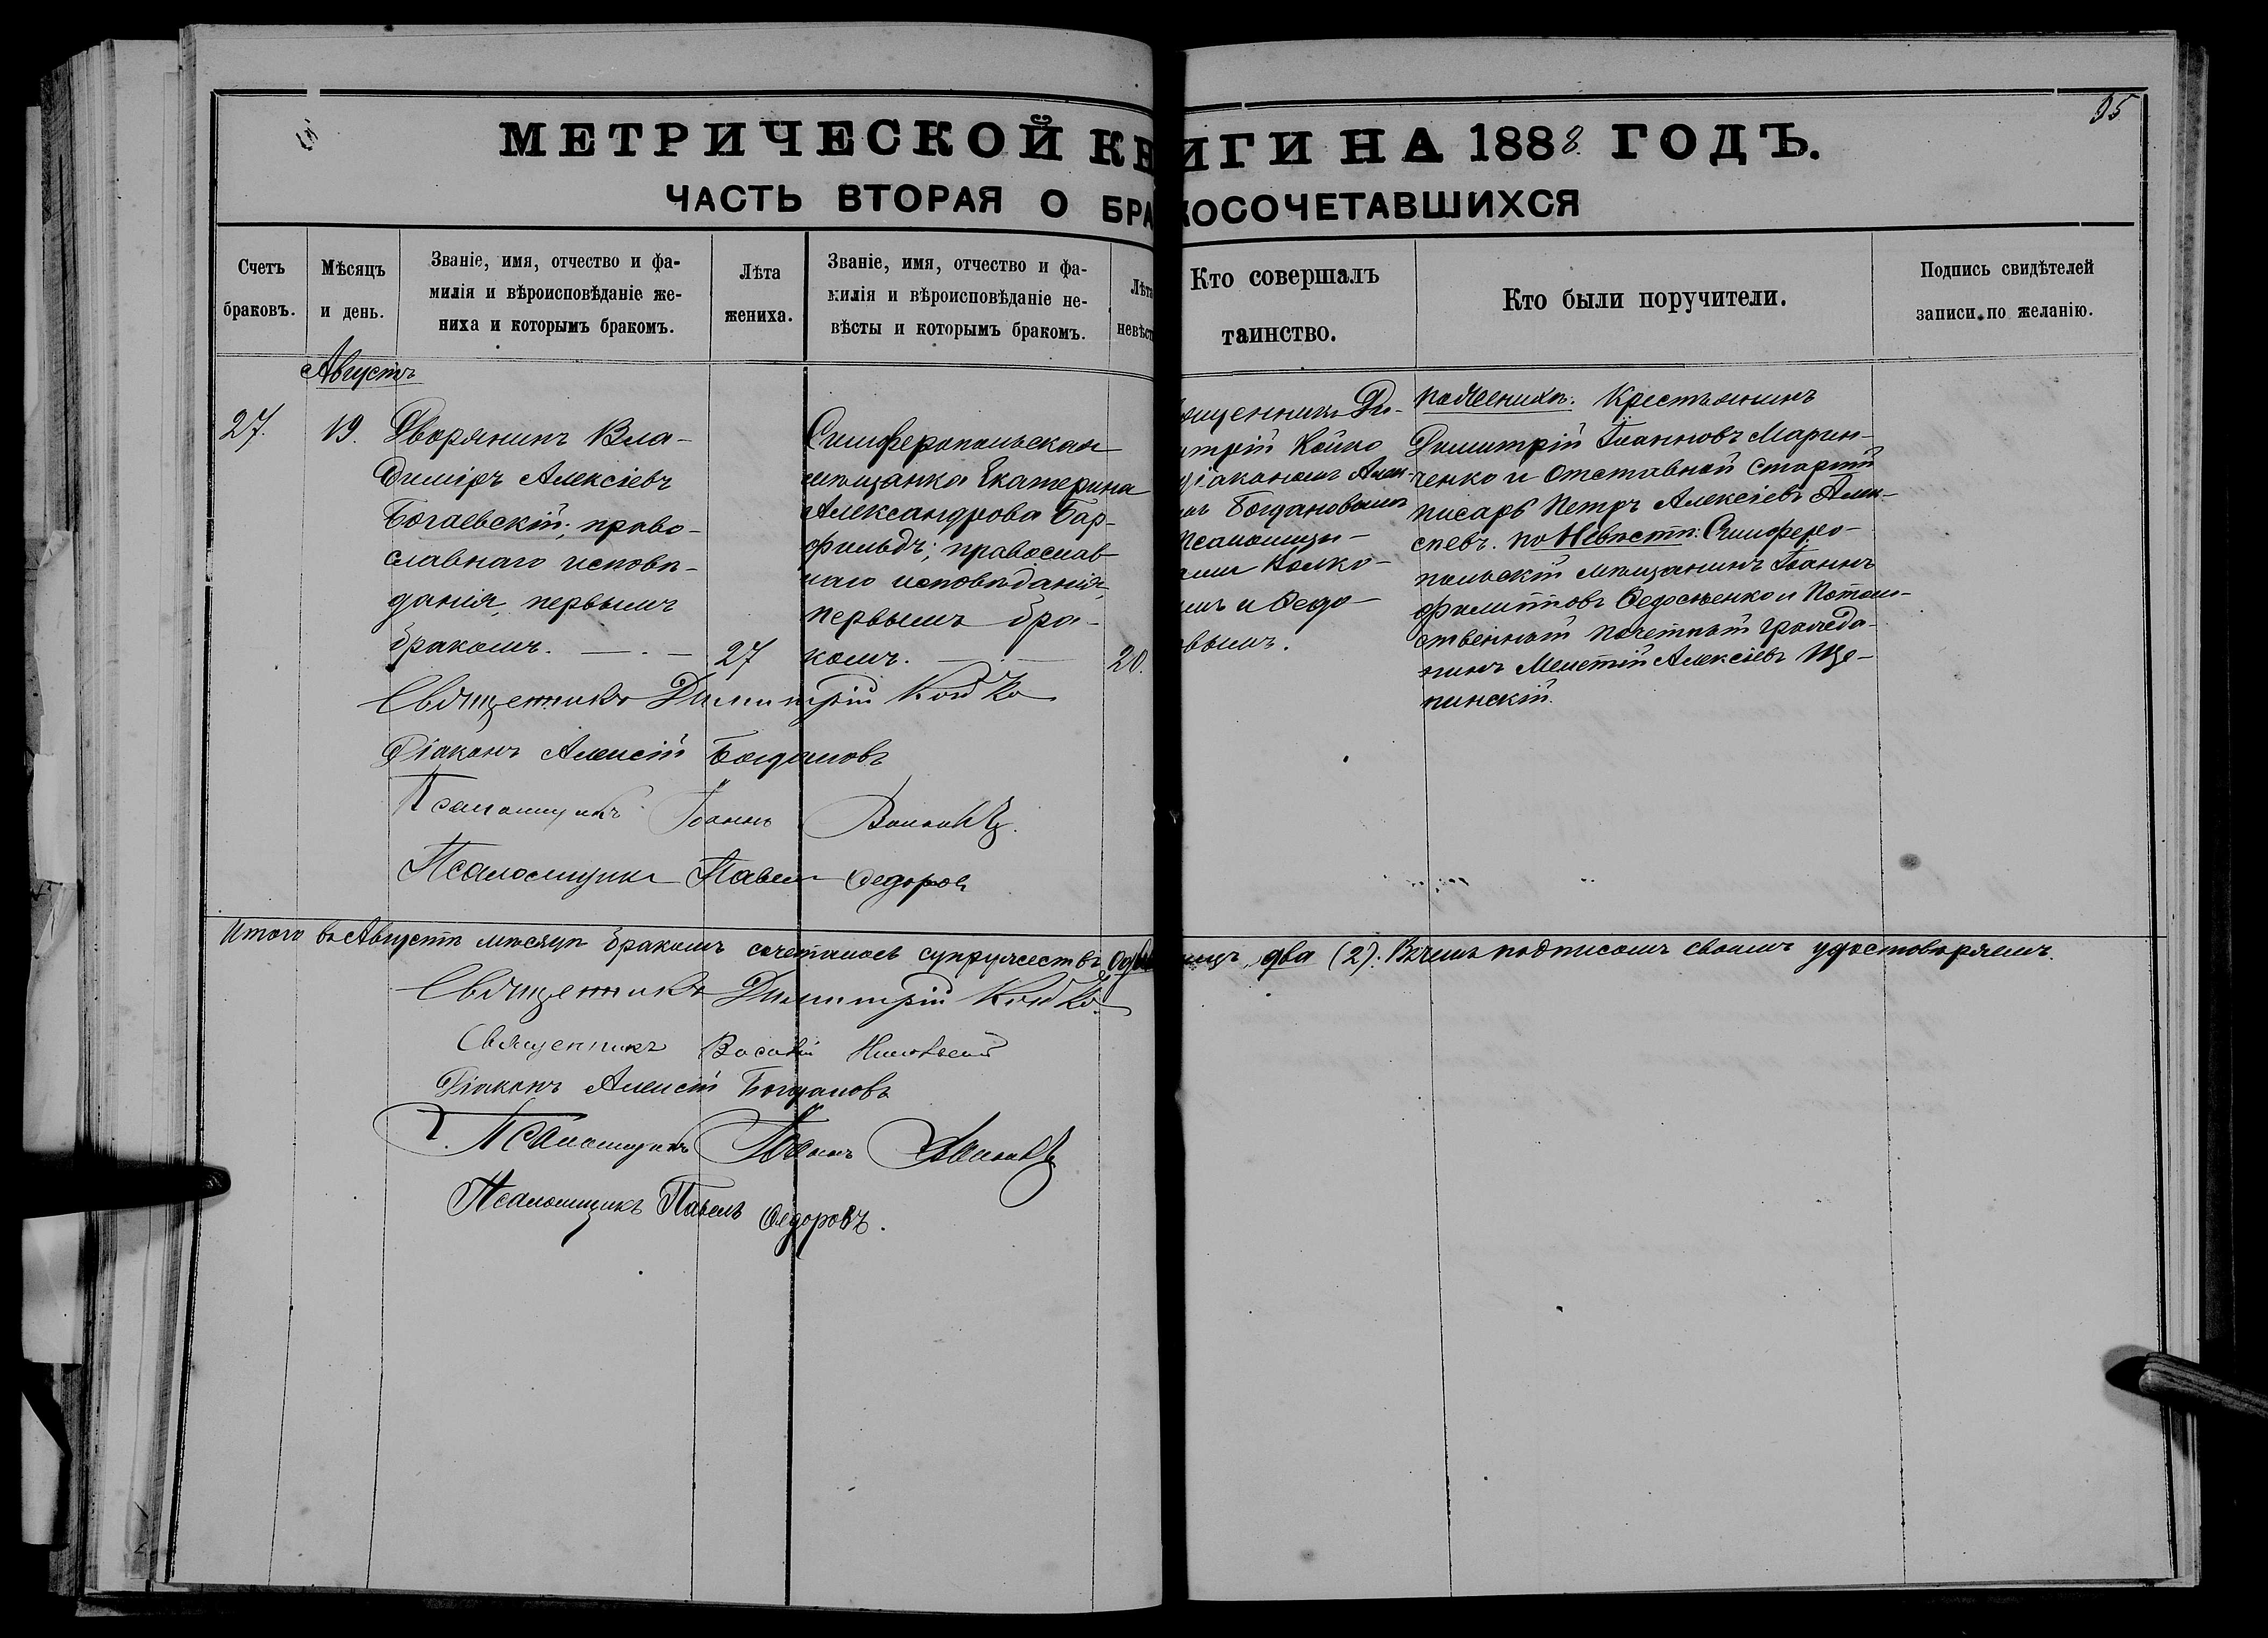 95
МЕТРИЧЕСКОЙ КНИГИ НА 1888 ГОДЪ.
ЧАСТЬ ВТОРАЯ О БРАКОСОЧЕТАВШИХСЯ
Счетъ
браковъ.
Мѣсяцъ
и день.
Званіе, имя, отчество и фа-
милія и вѣроисповѣданіе же-
ниха и которымъ бракомъ.
Лѣта
жениха.
Званіе, имя, отчество и фа-
милія и вѣроисповѣданіе не-
вѣсты и которымъ бракомъ.
Лѣта
невѣст
Кто совершалъ
таинство.
Кто были поручители.
Подпись свидѣтелей
записи по желанію.
Августъ
27.
19.
Дворянинъ Вла-
диміръ Алексіевъ
Богаевскій; право-
славнаго исповѣ-
данія, первымъ
бракомъ.
27
Симферопольская
мѣщанка Екатерина
Александрова Бар-
фильдъ; православ-
наго исповѣданія,
первымъ бра-
комъ.
20.
ященникъ Ди-
итрій Койко
діакономъ Алек-
мъ Богдановымъ
псаломщи-
ами Волко-
мъ и Ѳедо-
вымъ.
по Женихѣ: Крестьянинъ
Димитрій Іоанновъ Марин-
ченко и Отставной старшій
писарь Петръ Алексіевъ Алек-
сѣевъ. по Невѣстѣ: Симферо-
польскій мѣщанинъ Іоаннъ
Филипповъ Ѳедосѣенко и Потом-
ственный почетный гражда-
нинъ Мелетій Алексіевъ Ще-
пинскій.
Священникъ Димитрій Койко
Діаконъ Алексій Богдановъ
Псаломщикъ Іоаннъ Волковъ.
Псаломщикъ Павелъ Ѳедоровъ
Итого въ Августѣ мѣсяцѣ бракомъ сочеталось супружествъ два (2). Въ чемъ подписомъ своимъ удостовѣряемъ.
Священникъ Димитрій Койко.
Священникъ Василій
Діаконъ Алексій Богдановъ
Псаломщикъ Іоаннъ Волковъ
Псаломщикъ Павелъ Ѳедоровъ.